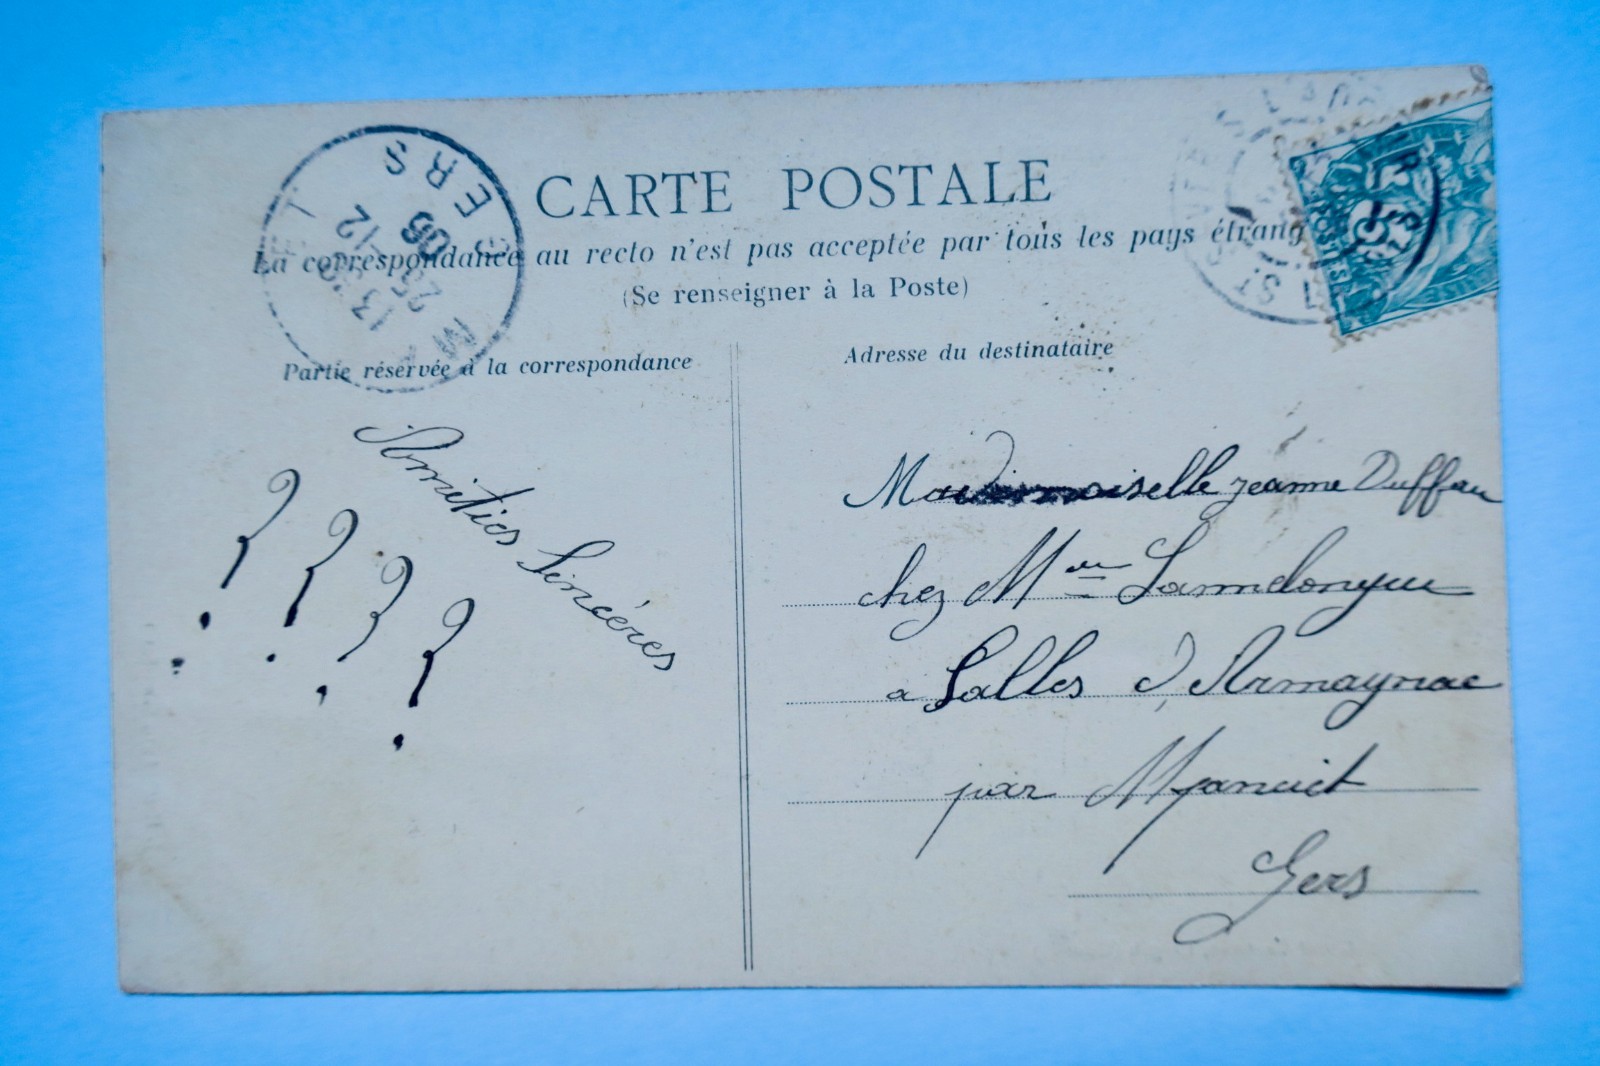 CARTE POSTALE
La correspondance au recto n'est pas acceptée par tous les pays étrang
(Se renseigner à la Poste)
Partie réservée à la correspondance
Adresse du destinataire
Amitiés Sincères
? ? ? ?
Mademoiselle Jeanne Duffau
chez Mme
a Salles d'Armagnac
par Manciet
Gers
13
23 12
05
ERS